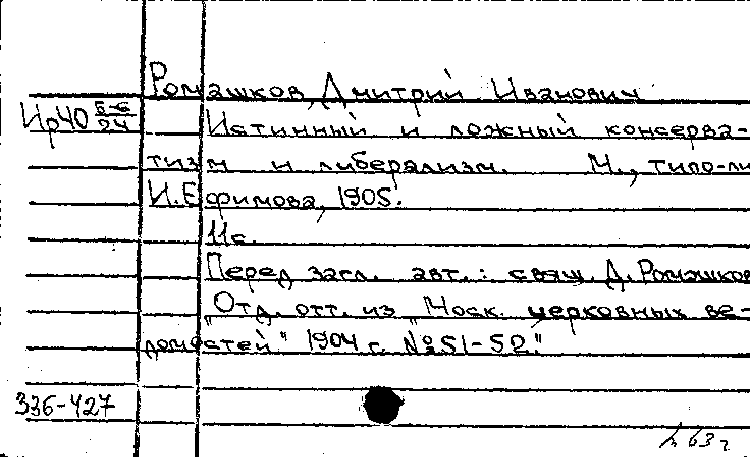 Ромашков, Дмитрий Иванович
Ир40 5-6/24
Истинный и ложный консерва-
тизм и либерализм. М., типо-ли
И. Ефимова, 1905.
11с.
Перед загл. авт.: свящ. Д. Ромашков
"Отд. отт. из "Моск. церковных ве-
домостей" 1904 г. №51-52."
336-427